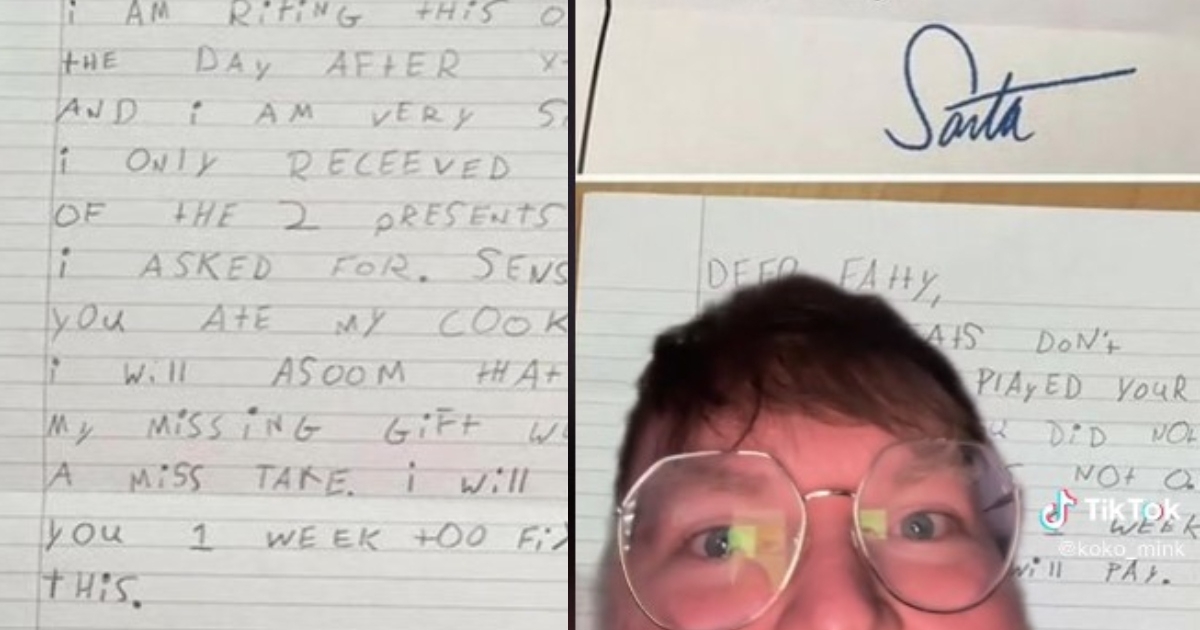 i AM RiTiNG tHiS O
tHE DAy AFtER X-
AND i AM VERY S
i ONLY RECEEVED
OF tHE 2 pRESENtS
i ASKED FOR. SENS
yOu AtE My COOK
i Will ASOOM tHAt
My MiSSiNG GiFt W
A MiSS TAKE. i Will
yOu 1 WEEK tOO Fi
tHiS.
Santa
DEER FAttY,
DON't
PlAyED YOUR
DiD NOt
NOt
TikTok
WEEK
@koko_mink
Will PAy.